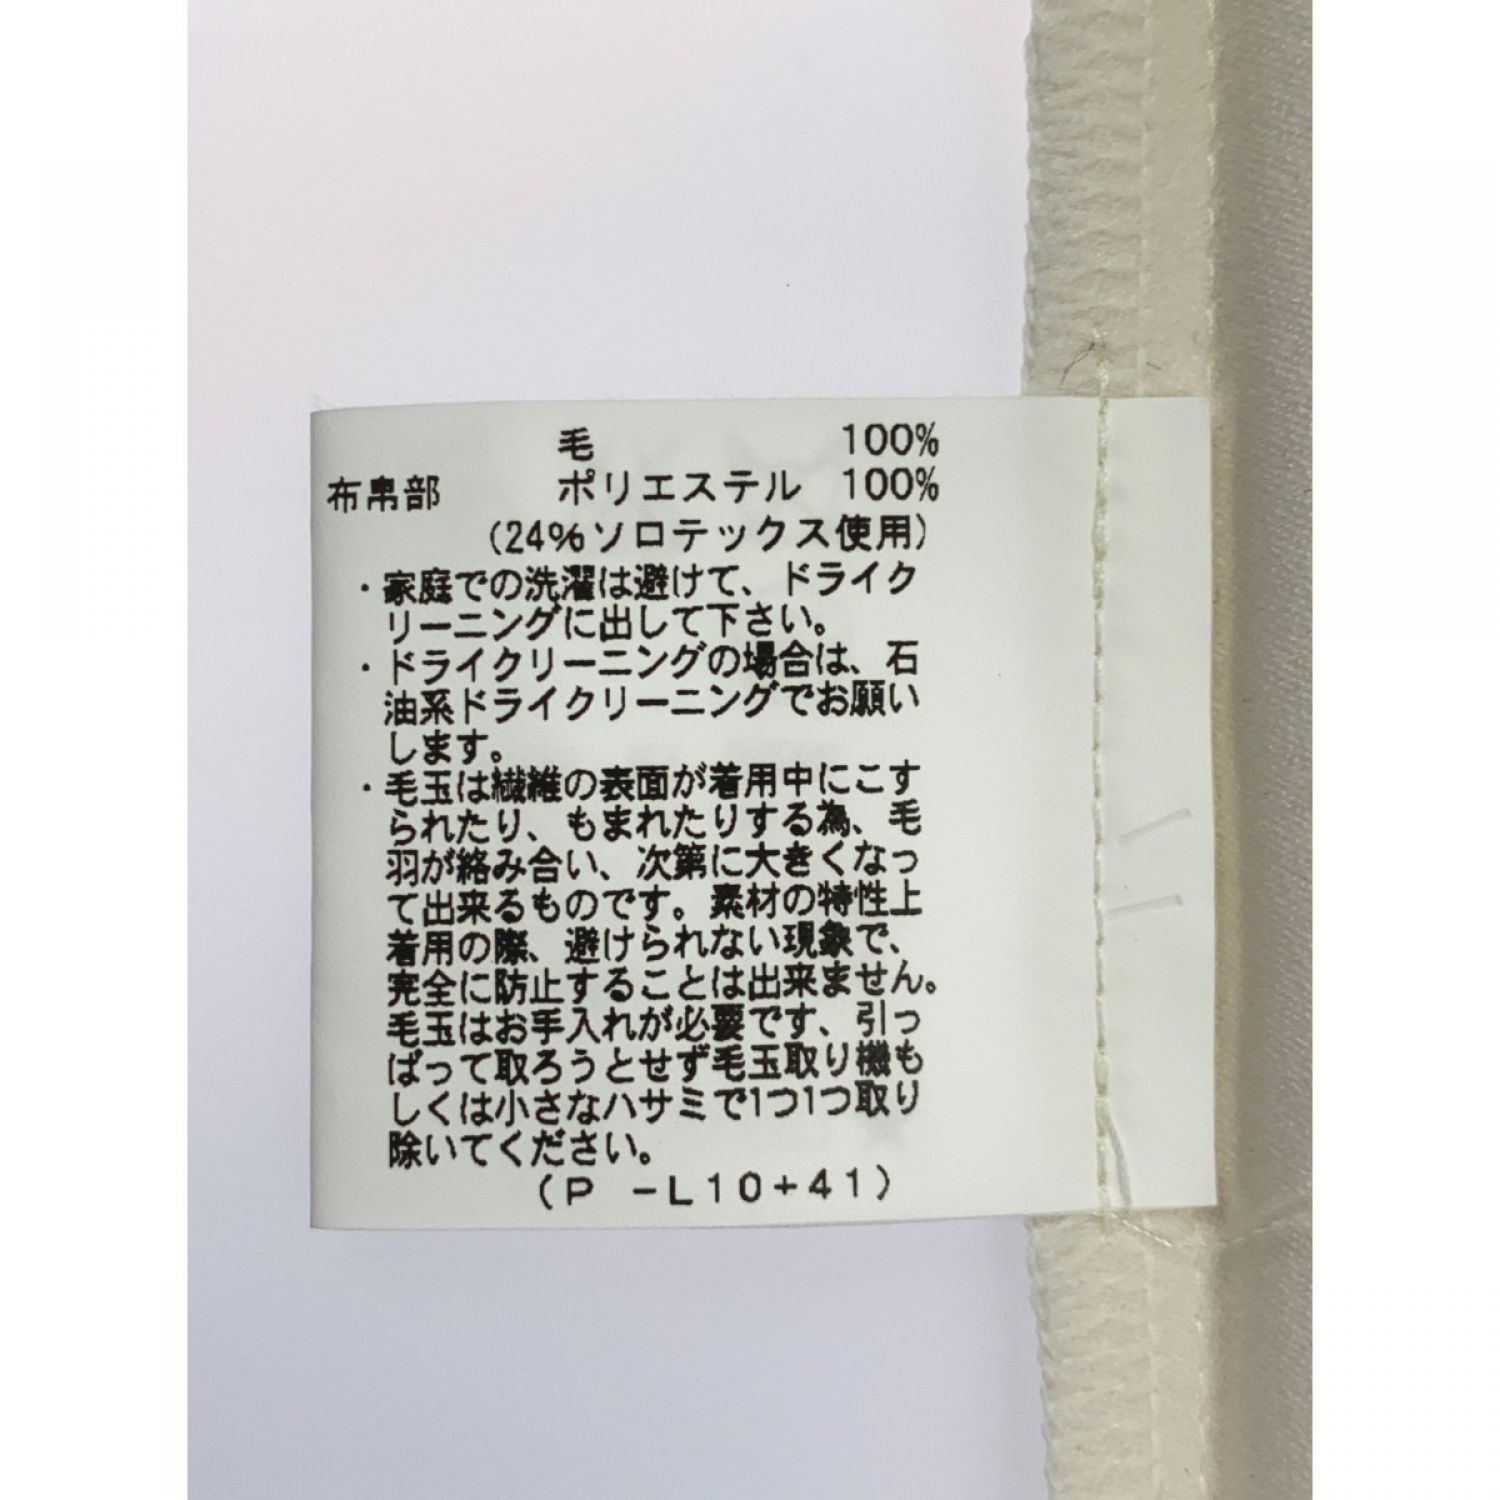 毛 100%
布帛部 ポリエステル 100%
(24%ソロテックス使用)
・家庭での洗濯は避けて、ドライク
リーニングに出して下さい。
・ドライクリーニングの場合は、石
油系ドライクリーニングでお願い
します。
・毛玉は繊維の表面が着用中にこす
られたり、もまれたりする為、毛
羽が絡み合い、次第に大きくなっ
て出来るものです。素材の特性上
着用の際、避けられない現象で、
完全に防止することは出来ません。
毛玉はお手入れが必要です、引っ
ぱって取ろうとせず毛玉取り機も
しくは小さなハサミで1つ1つ取り
除いてください。
(P -L10+41)